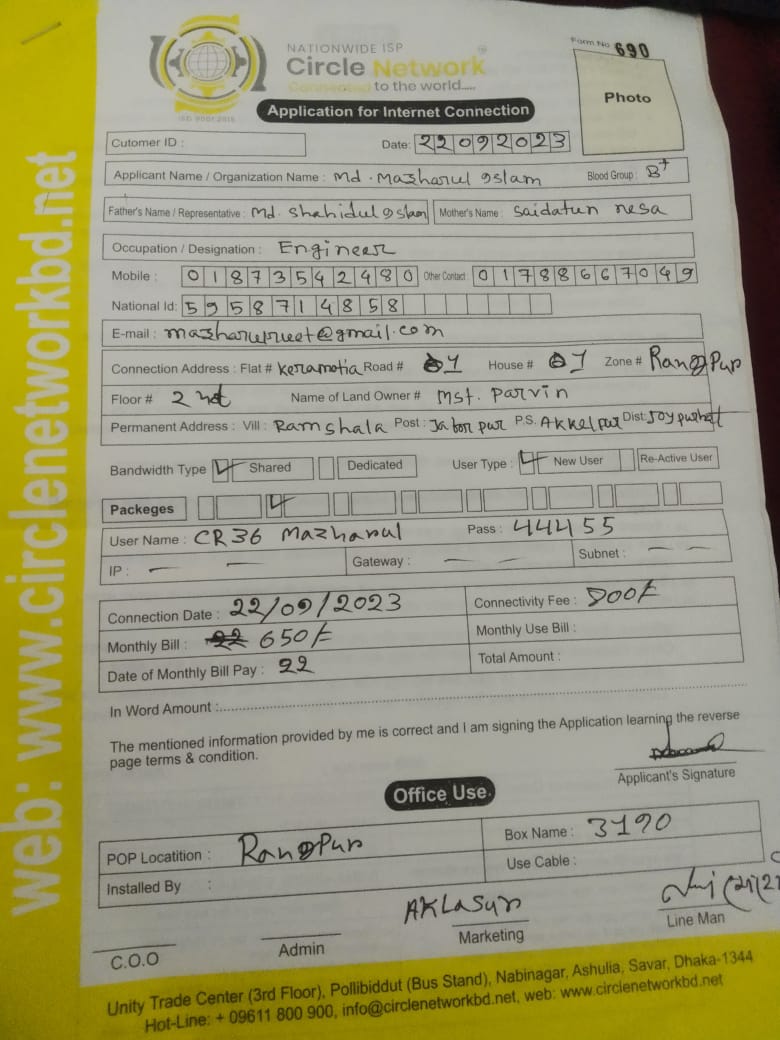 NATIONWIDE ISP
Circle Network
Connected to the world.....
ISO 9001:2015
Form No 690
Photo
Application for Internet Connection
Cutomer ID :
Date: 22092023
Applicant Name / Organization Name : Md. Mazharul Islam Blood Group : B+
Father's Name / Representative : Md. Shahidul Islam Mother's Name : Saidatun nesa
Occupation / Designation : Engineer
Mobile : 01873542480 Other Contact : 01788667049
National Id: 5958714858
E-mail : @gmail.com
Connection Address : Flat # Keramotia Road # 01 House # 01 Zone # Rangpur
Floor # 2nd Name of Land Owner # Mst. Parvin
Permanent Address : Vill : Ramshala Post : Jaforpur P.S. Akkelpur Dist: Joypurhat
Bandwidth Type Shared Dedicated User Type : New User Re-Active User
Packeges
User Name : CR36 Mazharul Pass : 44455
IP : — — Gateway : — — Subnet : — —
Connection Date : 22/09/2023 Connectivity Fee : 500/-
Monthly Bill : 650/- Monthly Use Bill :
Date of Monthly Bill Pay : 22 Total Amount :
In Word Amount :
The mentioned information provided by me is correct and I am signing the Application learning the reverse
page terms & condition.
Applicant's Signature
Office Use
POP Locatition : Rangpur Box Name : 3190
Installed By : Use Cable :
AKLASUR
C.O.O Admin Marketing Line Man
Unity Trade Center (3rd Floor), Pollibiddut (Bus Stand), Nabinagar, Ashulia, Savar, Dhaka-1344
Hot-Line: + 09611 800 900, info@circlenetworkbd.net, web: www.circlenetworkbd.net
web: www.circlenetworkbd.net